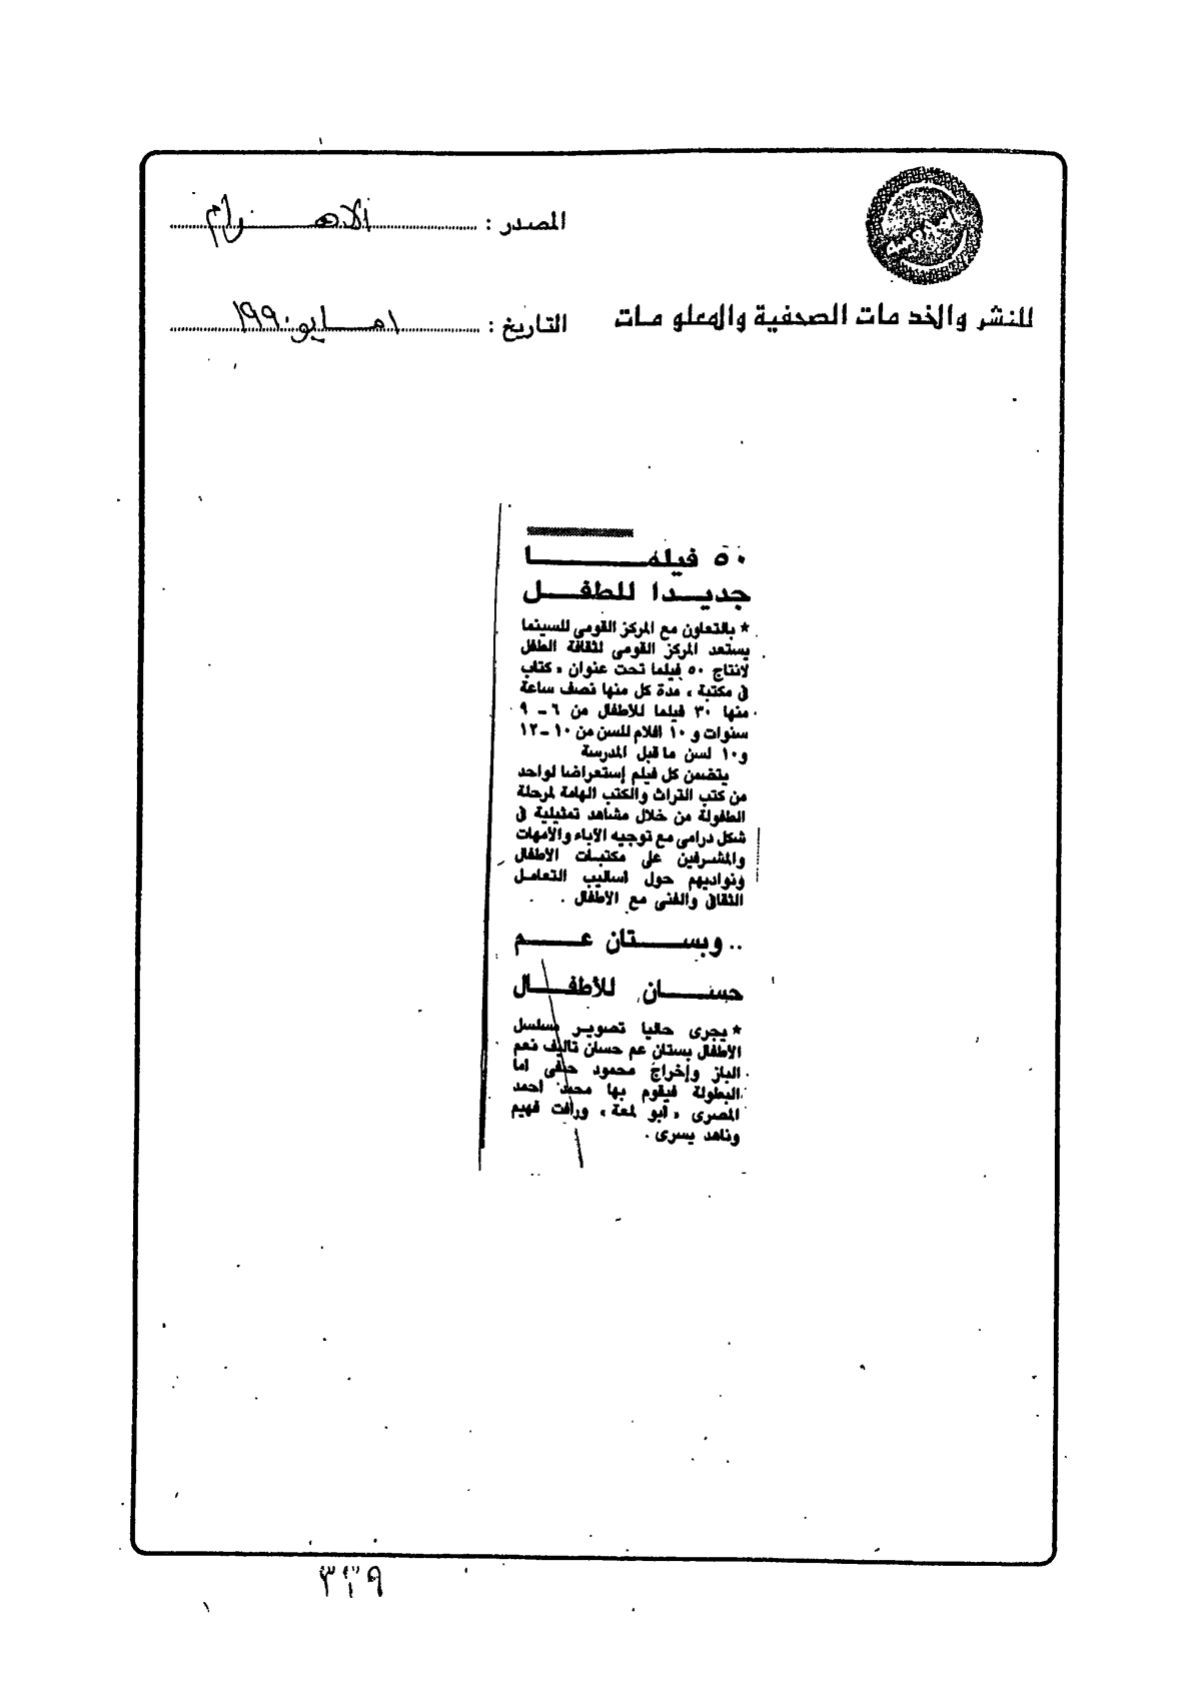 المصدر : الاهرام
للنشر والخدمات الصحفية والمعلومات
التاريخ : ١ مايو ١٩٩٠
٥٠ فيلما
جديدا للطفل
* بالتعاون مع المركز القومى للسينما
يستعد المركز القومى لثقافة الطفل
لانتاج ٥٠ فيلما تحت عنوان « كتاب
فى مكتبة » مدة كل منها نصف ساعة
منها ٣٠ فيلما للأطفال من ٦ ـ ٩
سنوات و ١٠ افلام للسن من ١٠ ـ ١٢
و١٠ لسن ما قبل المدرسة
يتضمن كل فيلم إستعراضا لواحد
من كتب التراث والكتب الهامة لمرحلة
الطفولة من خلال مشاهد تمثيلية فى
شكل درامى مع توجيه الآباء والأمهات
والمشرفين على مكتبات الأطفال
ونواديهم حول اساليب التعامل
الثقافى والفنى مع الأطفال .
.. وبستان عم
حسان للأطفال
* يجرى حاليا تصوير مسلسل
الأطفال بستان عم حسان تاليف نعم
الباز وإخراج محمود حنفى اما
البطولة فيقوم بها محمد احمد
المصرى « ابو لمعة » ورافت فهيم
وناهد يسرى .